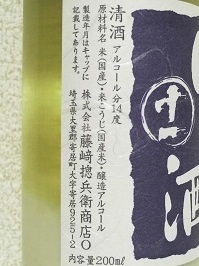 清酒 アルコール分14度
原材料名 米(国産)・米こうじ(国産米)・醸造アルコール
製造年月はキャップに
記載してあります。
株式会社 藤﨑摠兵衛商店O
埼玉県大里郡寄居町
大字寄居925-2
内容量200ml
十一
酒